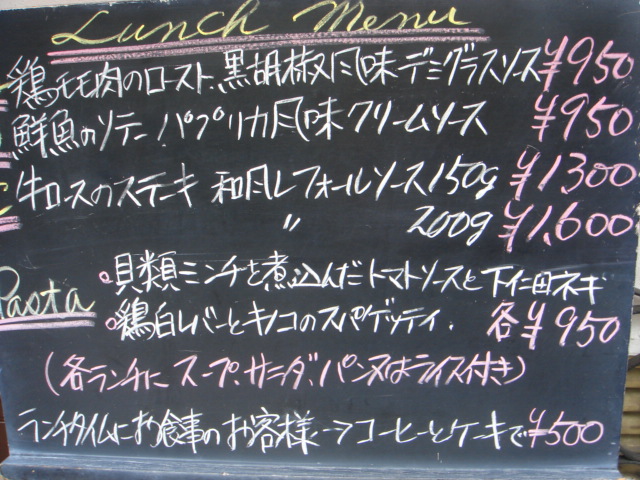 Lunch Menu
鶏モモ肉のロースト、黒胡椒風味デミグラスソース ¥950
鮮魚のソテー パプリカ風味クリームソース ¥950
C 牛ロースのステーキ 和風レフォールソース150g ¥1300
〃 200g ¥1,600
Pasta 。貝類ミンチを煮込んだトマトソースと下仁田ネギ
。鶏白レバーとキノコのスパゲッティ. 各¥950
(各ランチに スープ、サラダ、パン又はライス付き)
ランチタイムにお食事のお客様→コーヒーとケーキで¥500